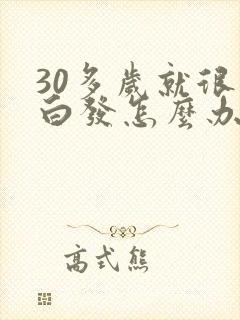 30多歲就很
白發怎麼办
高式熊